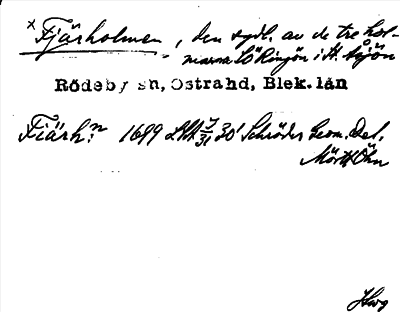 x Fjärholmen, den sydl. av de tre hol-
marna SÖ Ringön i St. Asjön
Rödeby sn, Östrahd, Blek. län
Fiärh:n 1699 LMA 7/31 30' Schröder Geom. Del.
Mörtt Öhn